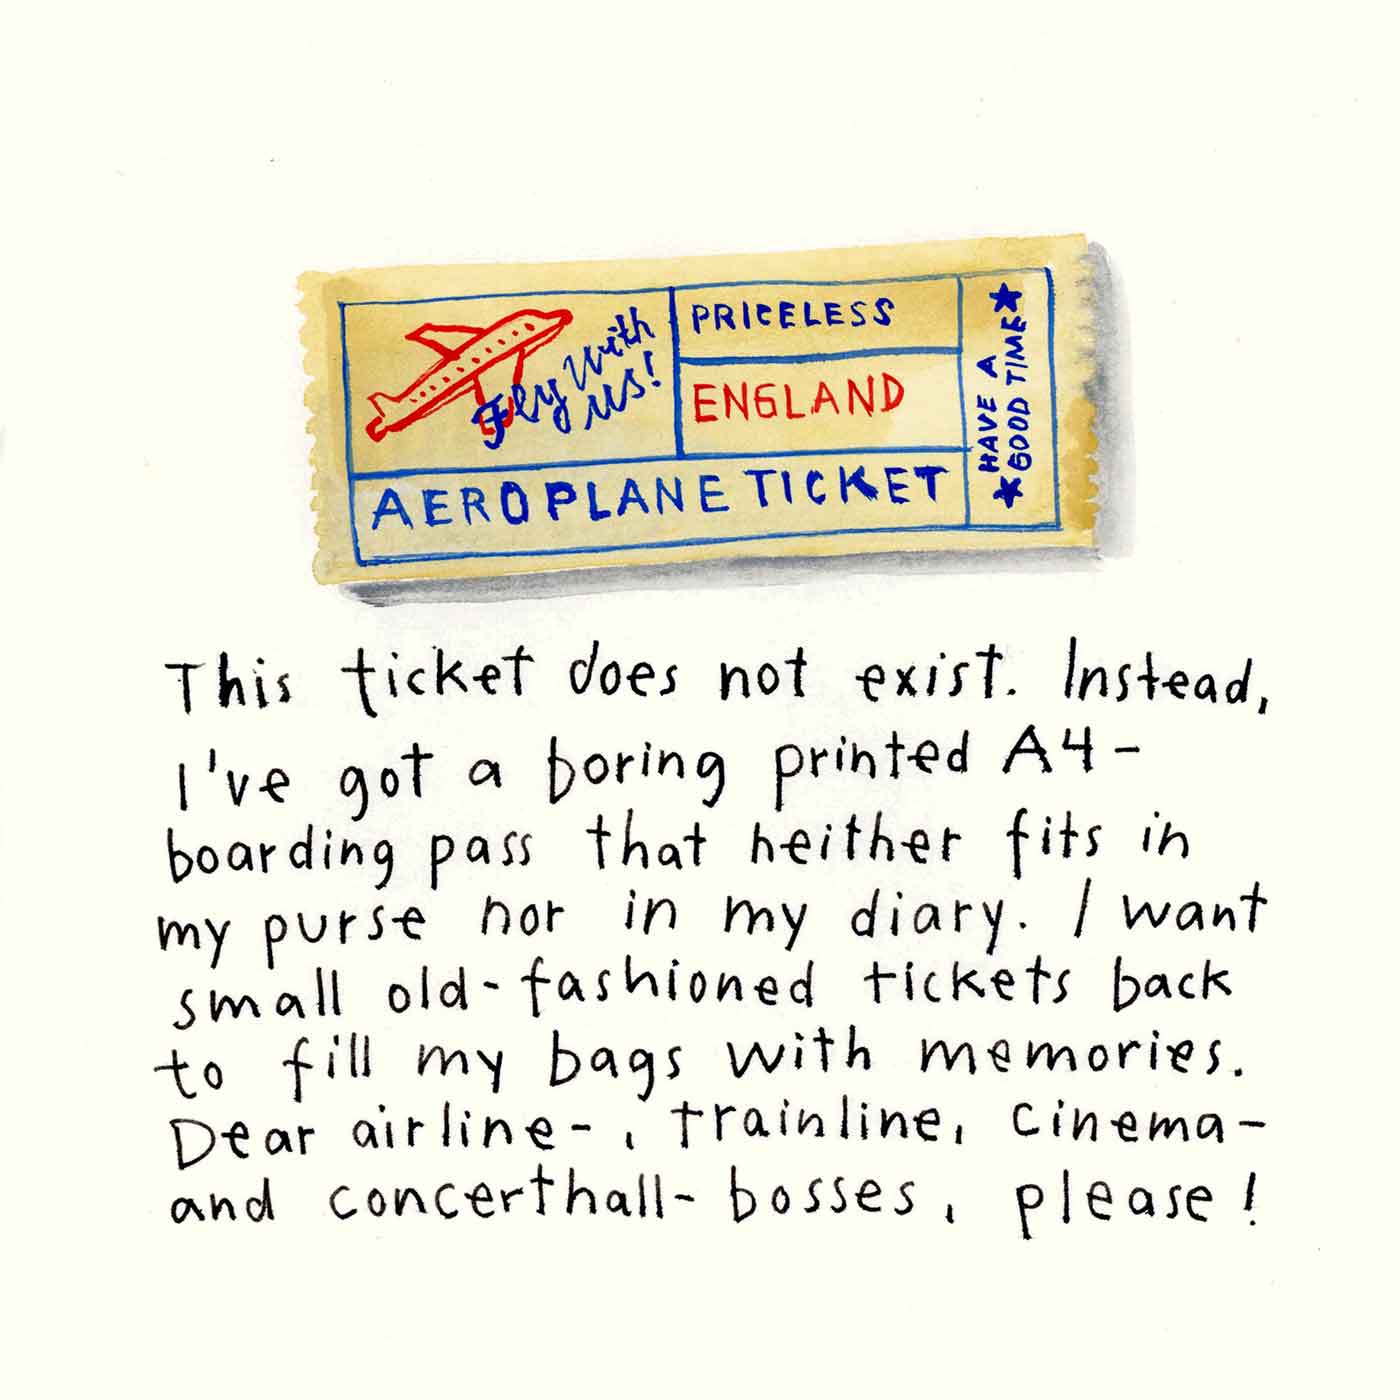 Fly with
us!
PRICELESS
ENGLAND
AEROPLANE TICKET
HAVE A
GOOD TIME
This ticket does not exist. Instead,
I've got a boring printed A4-
boarding pass that neither fits in
my purse nor in my diary. I want
small old-fashioned tickets back
to fill my bags with memories.
Dear airline-, trainline, cinema-
and concerthall-bosses, please!